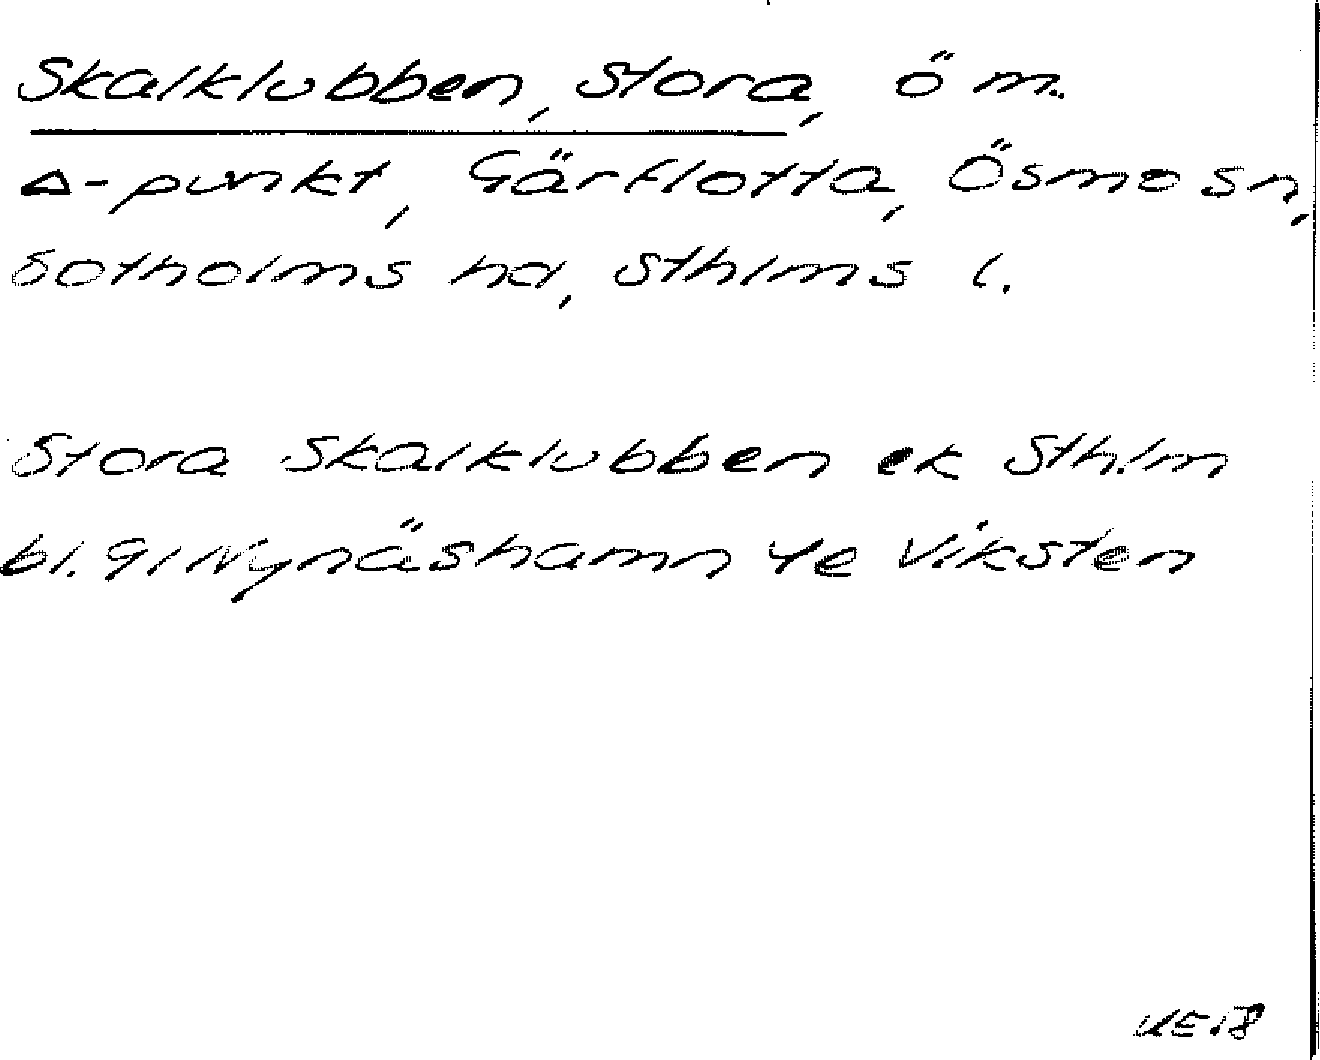 Skalklubben, Stora, ö m.
Δ-punkt, Gärflotta, Ösmo sn,
Sotholms hd, Sthlms l.
Stora Skalklubben ek Sthlm
bl. 91 Nynäshamn 4e Viksten